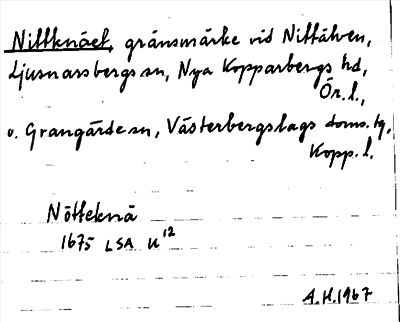 Nittknäet, gränsmärke vid Nittälven,
Ljusnarsbergs sn, Nya Kopparbergs hd,
Ör. l.,
o. Grangärde sn, Västerbergslags doms. tg,
Kopp. l.
Nötteknä
1675 LSA U¹²
A.H. 1967